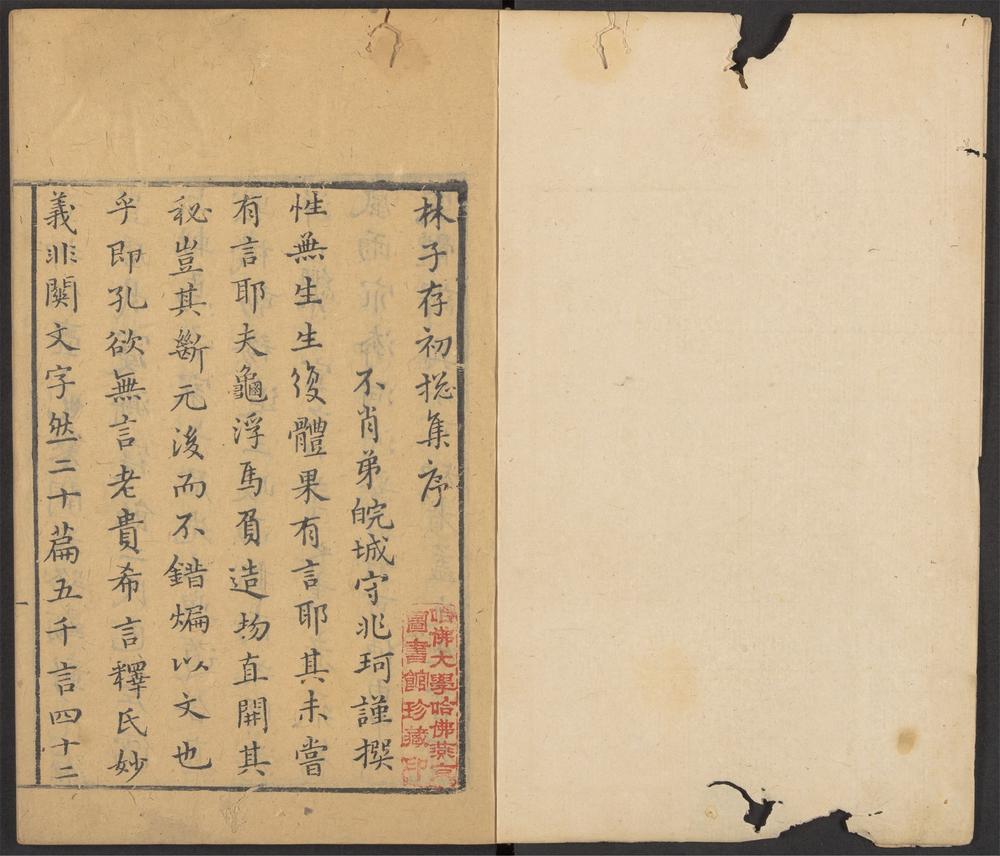 林子存初摠集序
不肖弟皖城守兆珂謹撰
性無生生復體果有言耶其未嘗
有言耶夫龜浮馬負造物直開其
秘豈其斷元浚而不錯煸以文也
乎即孔欲無言老貴希言釋氏妙
義非關文字然二十篇五千言四十二
哈佛大學哈佛燕京
圖書館珍藏印